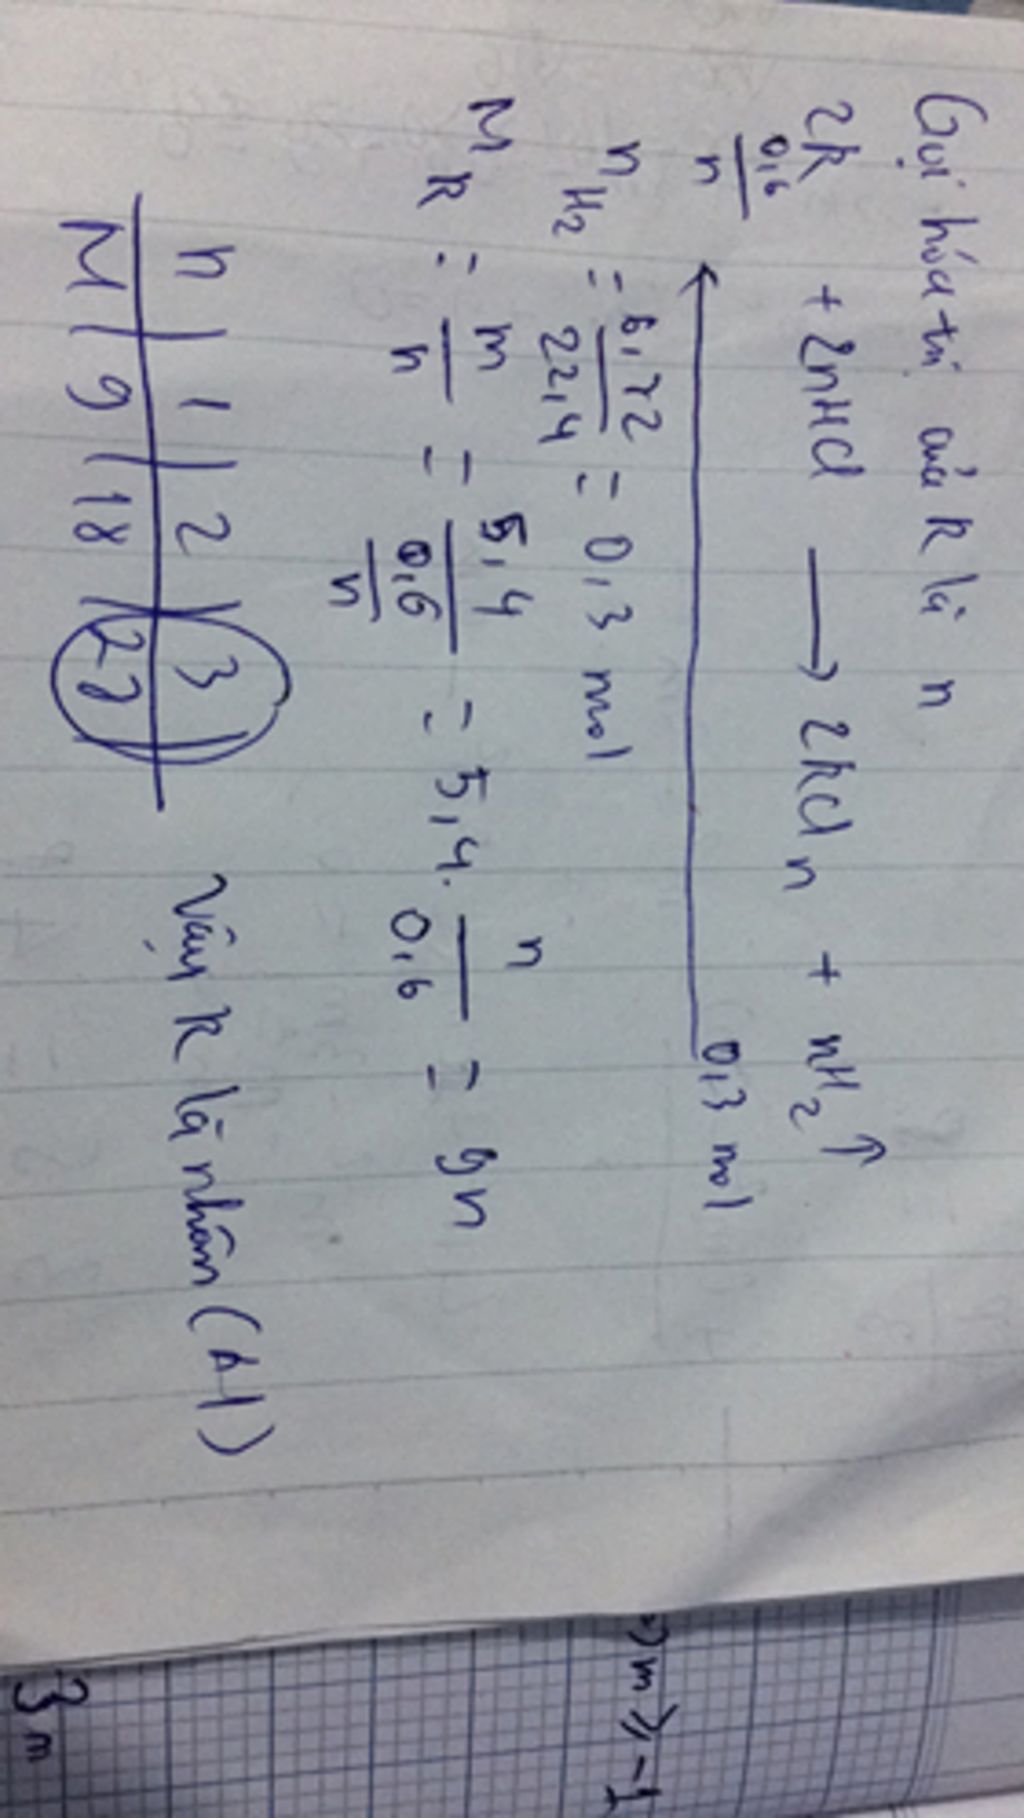 Gọi hóa trị của R là n
2R + 2nHCl → 2RCln + nH2↑
0,6/n ← 0,3 mol
nH2 = 6,72/22,4 = 0,3 mol
MR = m/n = 5,4/(0,6/n) = 5,4 . n/0,6 = 9n
n | 1 | 2 | 3
M | 9 | 18 | 27
Vậy R là nhôm (Al)
m ≥ -1
3m